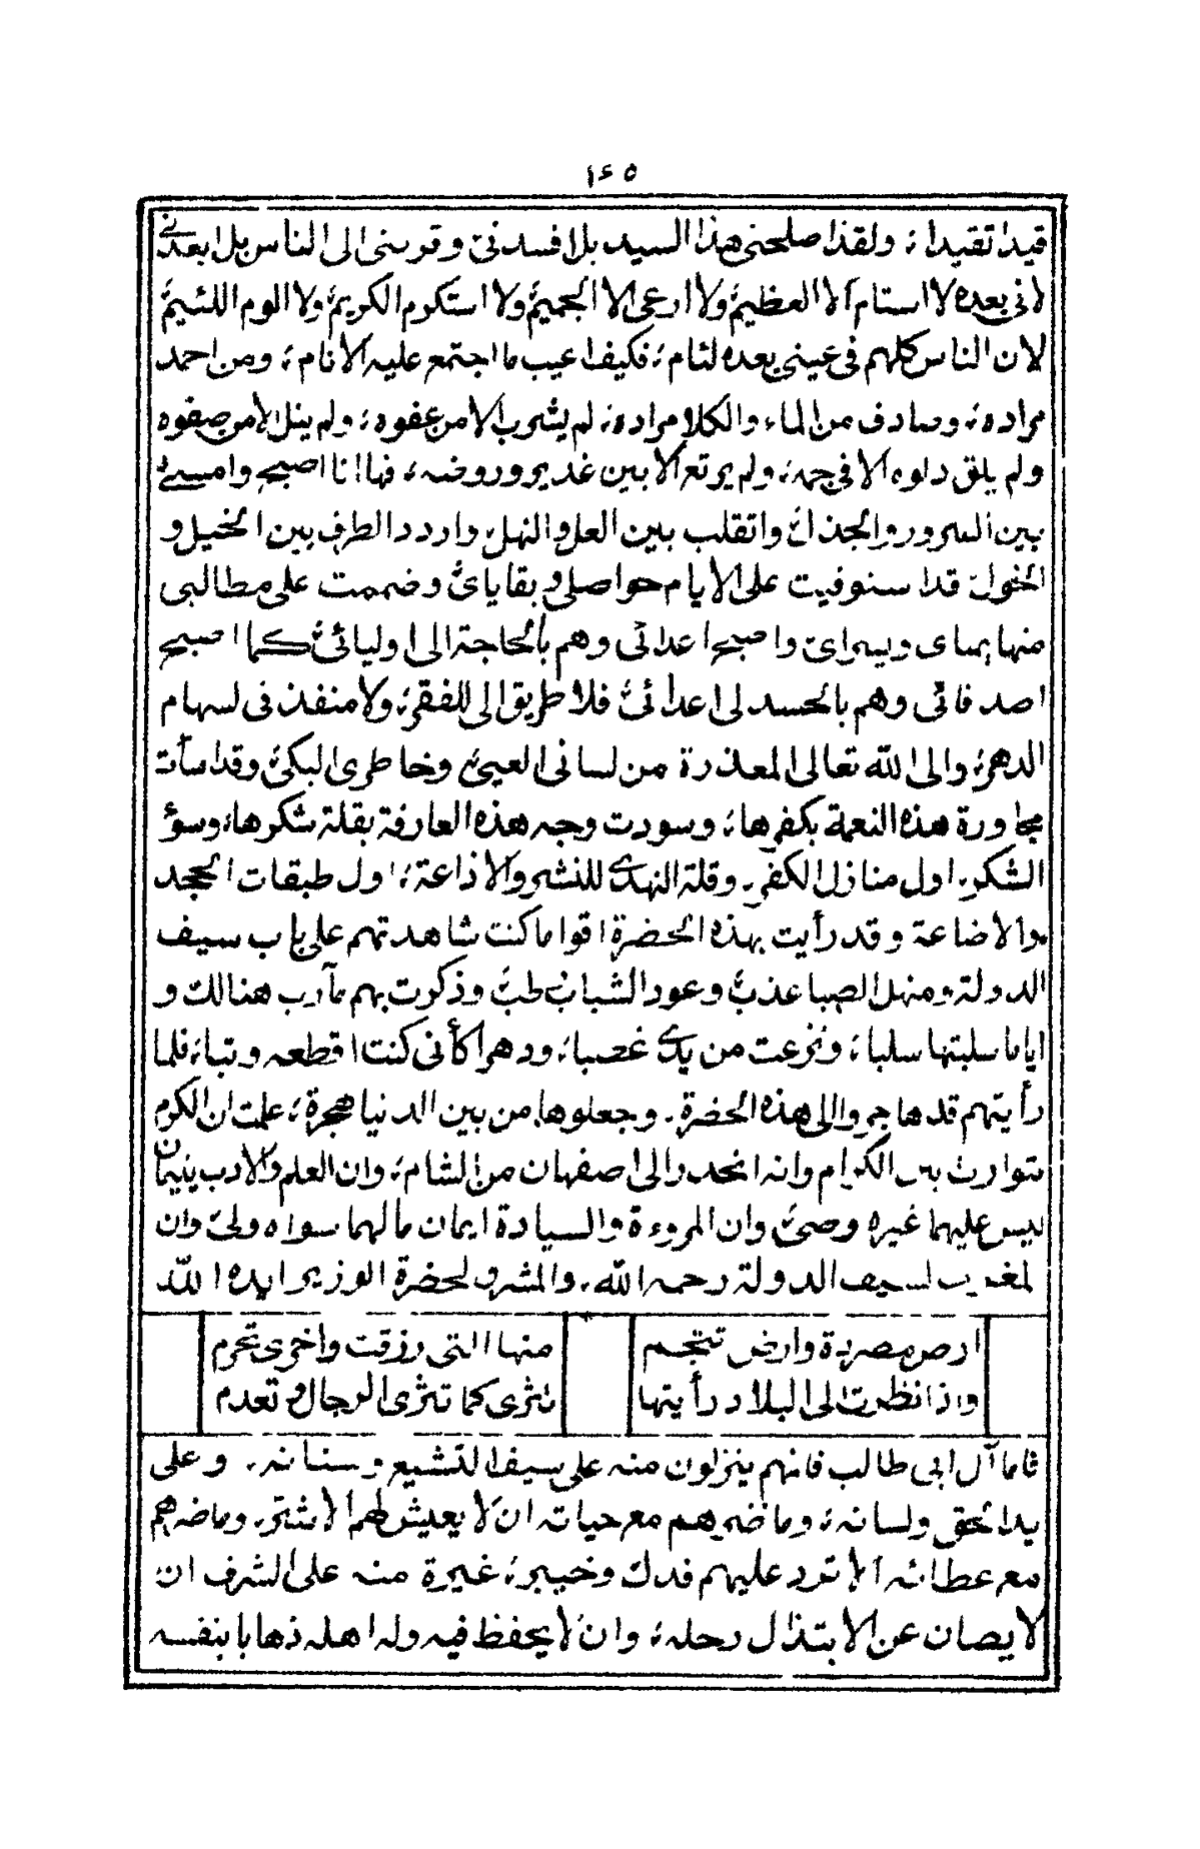 ١٤٥
قيدا تقيدا ؛ ولقد اصلحنى هذا السيد بل افسدنى وقربنى الى الناس بل ابعدنى
لانى بعده لا استام الا العظيم ولا ارعى الا الجميم ولا استكرم الكريم ولا الوم اللئيم
لان الناس كلهم فى عينى بعده لئام ؛ فكيف اعيب ما اجتمع عليه الانام ؛ ومن احمد
مراده ؛ وصادف من الماء والكلا مراده ؛ لم يشرب الا من عفوه ؛ ولم ينل الا من صفوه
ولم يلق دلوه الا فى جمه ؛ ولم يرتع الا بين غدير وروضه ؛ فها انا اصبح وامسى
بين السرور والجذل واتقلب بين العل والنهل واردد الطرف بين الخيل و
الخول قد استوفيت على الايام حواصلى وبقاياى وضممت على مطالبى
منها يمناى ويسراى واصبح اعدائى وهم بالحاجة الى اوليائى كما اصبح
اصدقائى وهم بالحسد لى اعدائى فلا طريق الى للفقر ؛ ولا منفذ فى لسهام
الدهر ؛ والى الله تعالى المعذرة من لسانى العيى وخاطرى البكى وقد اسأت
مجاورة هذه النعمة بكفرها ؛ وسودت وجه هذه العارفة بقلة شكرها ؛ وسؤ
الشكر اول منازل الكفر وقلة النهدى للنشر والاذاعة ؛ اول طبقات الجحد
والاضاعة وقد رأيت بهذه الحضرة اقواما كنت شاهدتهم على باب سيف
الدولة ومنهل الصبا عذب وعود الشباب رطب وذكرت بهم مآرب هنالك و
اياما سلبتها سلبا ؛ ونزعت من يدى غصبا ؛ ودهرا كأنى كنت اقطعه وثبا ؛ فلما
رأيتهم قد هاجروا الى هذه الحضرة وجعلوها من بين الدنيا هجرة ؛ علمت ان الكرم
يتوارث بين الكرام وانه انحدر الى اصفهان من الشام ؛ وان العلم والادب يتيمان
ليس عليهما غيره وصى وان المروءة والسيادة ايمان مالهما سواه ولى وان
المغرب لسيف الدولة رحمه الله والمشرق لحضرة الوزير ايده الله
ارض مصردة وارض تثجم منها التى رزقت واخرى تحرم
واذا نظرت الى البلاد رأيتها تثرى كما تثرى الرجال وتعدم
فاما آل ابى طالب فانهم ينزلون منه على سيف التشيع وسنانه وعلى
يد الحق ولسانه ؛ وما ضرهم مع حياته ان لا يعيش لهم الاشتر وما ضرهم
مع عطائه الا ترد عليهم فدك وخيبر ؛ غيرة منه على الشرف ان
لا يصان عن الابتذال رحله ؛ وان لا يحفظ فيه وله اهله ذهابا بنفسه